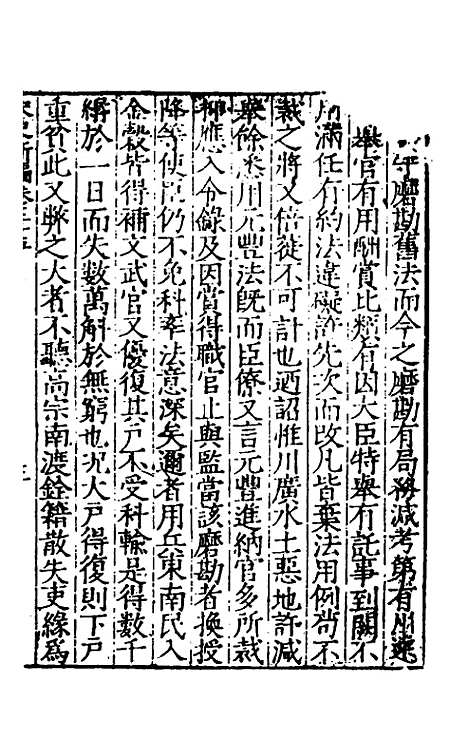 守磨勘舊法而今之磨勘有局務減考第有川遠
舉官有用酬賞比類有因大臣特舉有託事到闕不
用滿任有約法違礙許先次而改凡皆棄法用例苟不
裁之將又倍徙不可計也迺詔惟川廣水土惡地許減
舉餘悉用元豐法旣而臣僚又言元豐進納官多所裁
抑應入令錄及因賞得職官止與監當該磨勘者換授
降等使臣仍不免科率法意深矣邇者用兵東南民入
金穀皆得補文武官又優復其戶不受科輸是得數千
緡於一日而失數萬斛於無窮也況大戶得復則下戶
重貧此又弊之大者不聽高宗南渡銓籍散失吏緣為